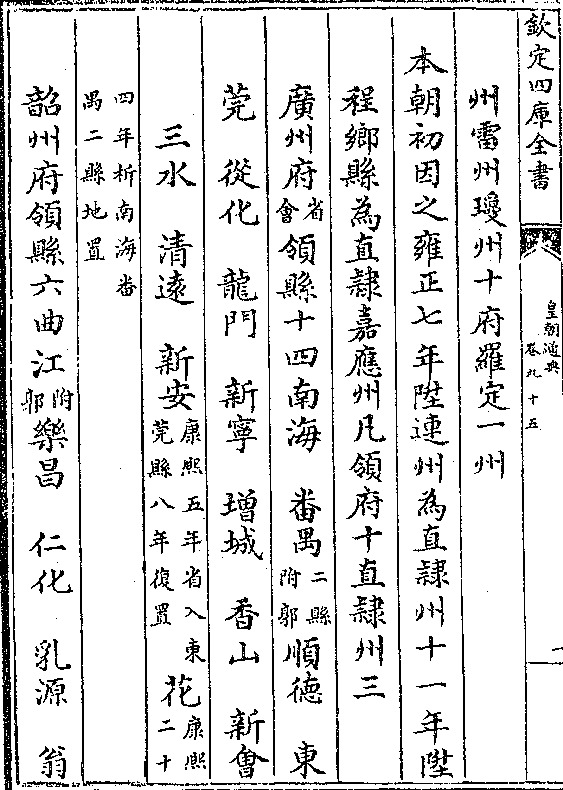 欽定四庫全書
皇朝通典
卷九十五
一
州雷州瓊州十府羅定一州
本朝初因之雍正七年陞連州為直隸州十一年陞
程鄉縣為直隸嘉應州凡領府十直隸州三
廣州府省會領縣十四南海 番禺二縣附郭順德 東
莞 從化 龍門 新寧 增城 香山 新會
三水 清遠 新安康熙五年省入東莞縣八年復置花康熙二十
四年析南海番禺二縣地置
韶州府領縣六曲江附郭樂昌 仁化 乳源 翁